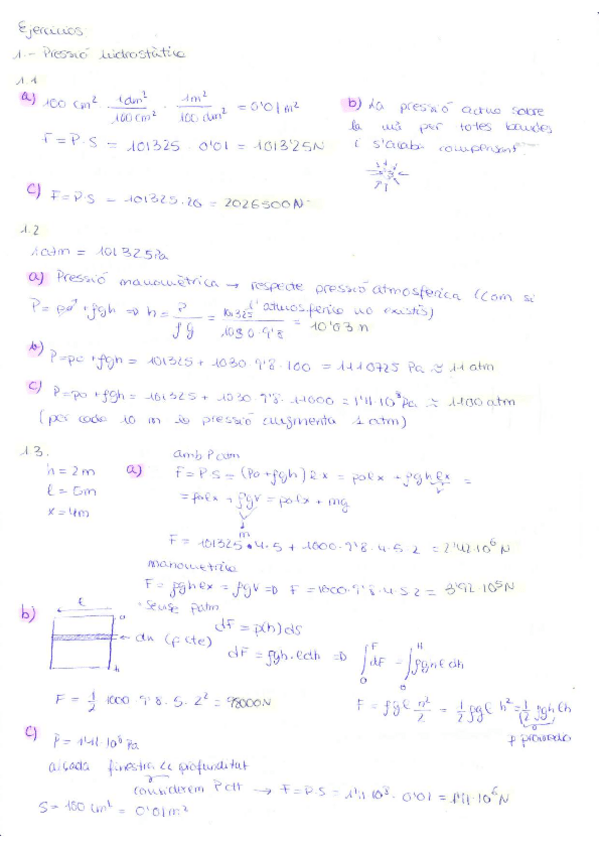 Ejercicios:
1.- Pressió hidrostàtica
1.1
a) 100 cm² · 1dm²/100cm² · 1m²/100dm² = 0'01 m²
F = P·S = 101325 · 0'01 = 1013'25N
b) La pressió actua sobre
la mà per totes bandes
i s'acaba compensant
c) F = P·S = 101325·20 = 2026500N
1.2
1atm = 101325Pa
a) Pressió manomètrica → respecte pressió atmosferica (com si
l'atmosfèrica no existís)
P = po + ρgh ⇒ h = P/ρg = 101325/1030·9'8 = 10'03 m
b) P = po + ρgh = 101325 + 1030·9'8·100 = 1110725 Pa ≈ 11 atm
c) P = po + ρgh = 101325 + 1030·9'8·11000 = 1'11·10⁸Pa ≈ 1100 atm
(per cada 10 m la pressió augmenta 1 atm)
1.3.
h = 2m
l = 5m
x = 4m
a) amb Patm
F = P·S = (Po + ρgh) lx = polx + ρghlx =
V
= polx + ρgV = polx + mg
m
F = 101325·4·5 + 1000·9'8·4·5·2 = 2'42·10⁶N
manometrica
F = ρghlx = ρgV ⇒ F = 1000·9'8·4·5·2 = 3'92·10⁵N
sense patm
b) l
o
dh (p cte)
h
dF = p(h)ds
dF = ρgh·ldh ⇒ ∫₀F dF = ∫₀H ρghldh
F = 1/2 1000·9'8·5·2² = 98000N
F = ρgl h²/2 = 1/2 ρgl h² = 1/2 ρgh lh
p promedio
c) P = 1'11·10⁸Pa
alçada finestra profunditat
considerem P ctt → F = P·S = 1'11·10⁸·0'01 = 1'11·10⁶N
S = 100cm² = 0'01m²